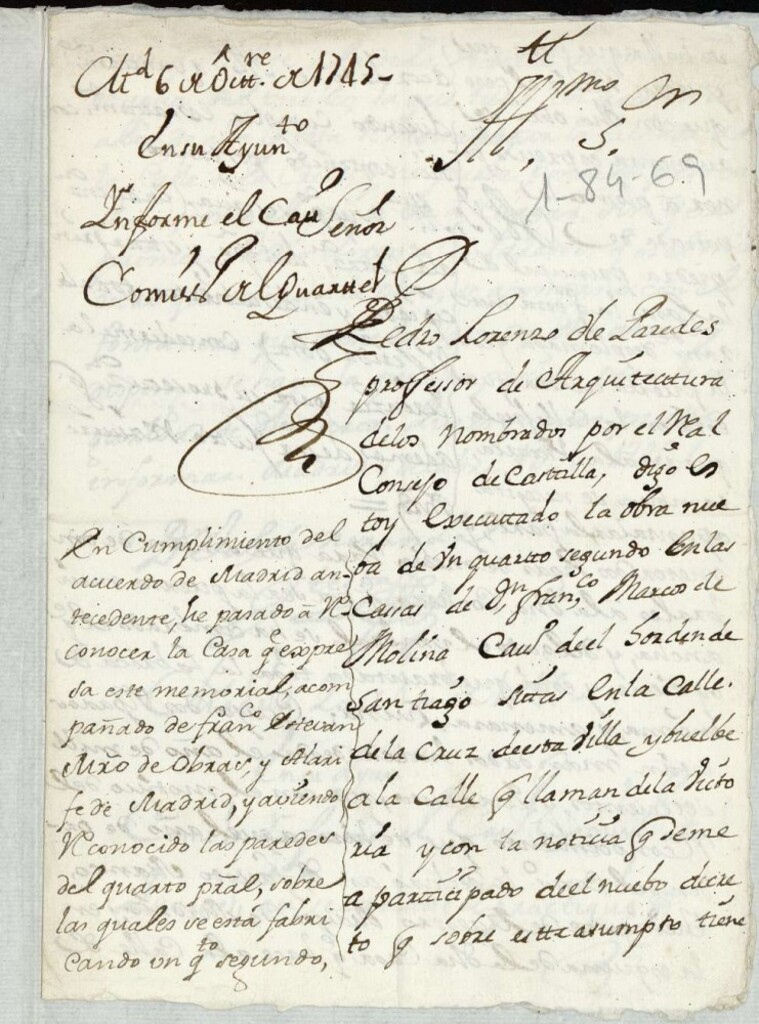 Md 6 de Octtre. de 1745-
En su Ayunto
Ynforme el Cavro Señor
Comisso del Quarttel
Illmo Sr
S.
1-84-69
Pedro Lorenzo de Paredes
professor de Arquitectura
delos nombrados por el Real
Consejo de Castilla, digo es
toy executtado la obra nue
ba de Un quartto segundo en las
Cassas de Dn. Franco, Marcos de
Molina Cavo deel horden de
Santtiago sittas en la Calle.
de la Cruz de esta Villa y buelbe
a la Calle q llaman de la Victo
ria y con la noticia q deme
a partticipado de el nuebo decre
to q sobre estte asumpto tiene
En Cumplimiento del
acuerdo de Madrid an-
tecedente, he pasado à Re
conocer la Casa q expre
sa este memorial, acom
pañado de Franco Estevan
Mro de Obras, y Alari
fe de Madrid, y aviendo
Reconocido las paredes
del quarto pral, sobre
las quales se está fabri
cando un qto segundo,